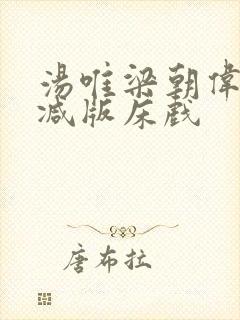 湯唯梁朝偉
减版床戲
唐布拉